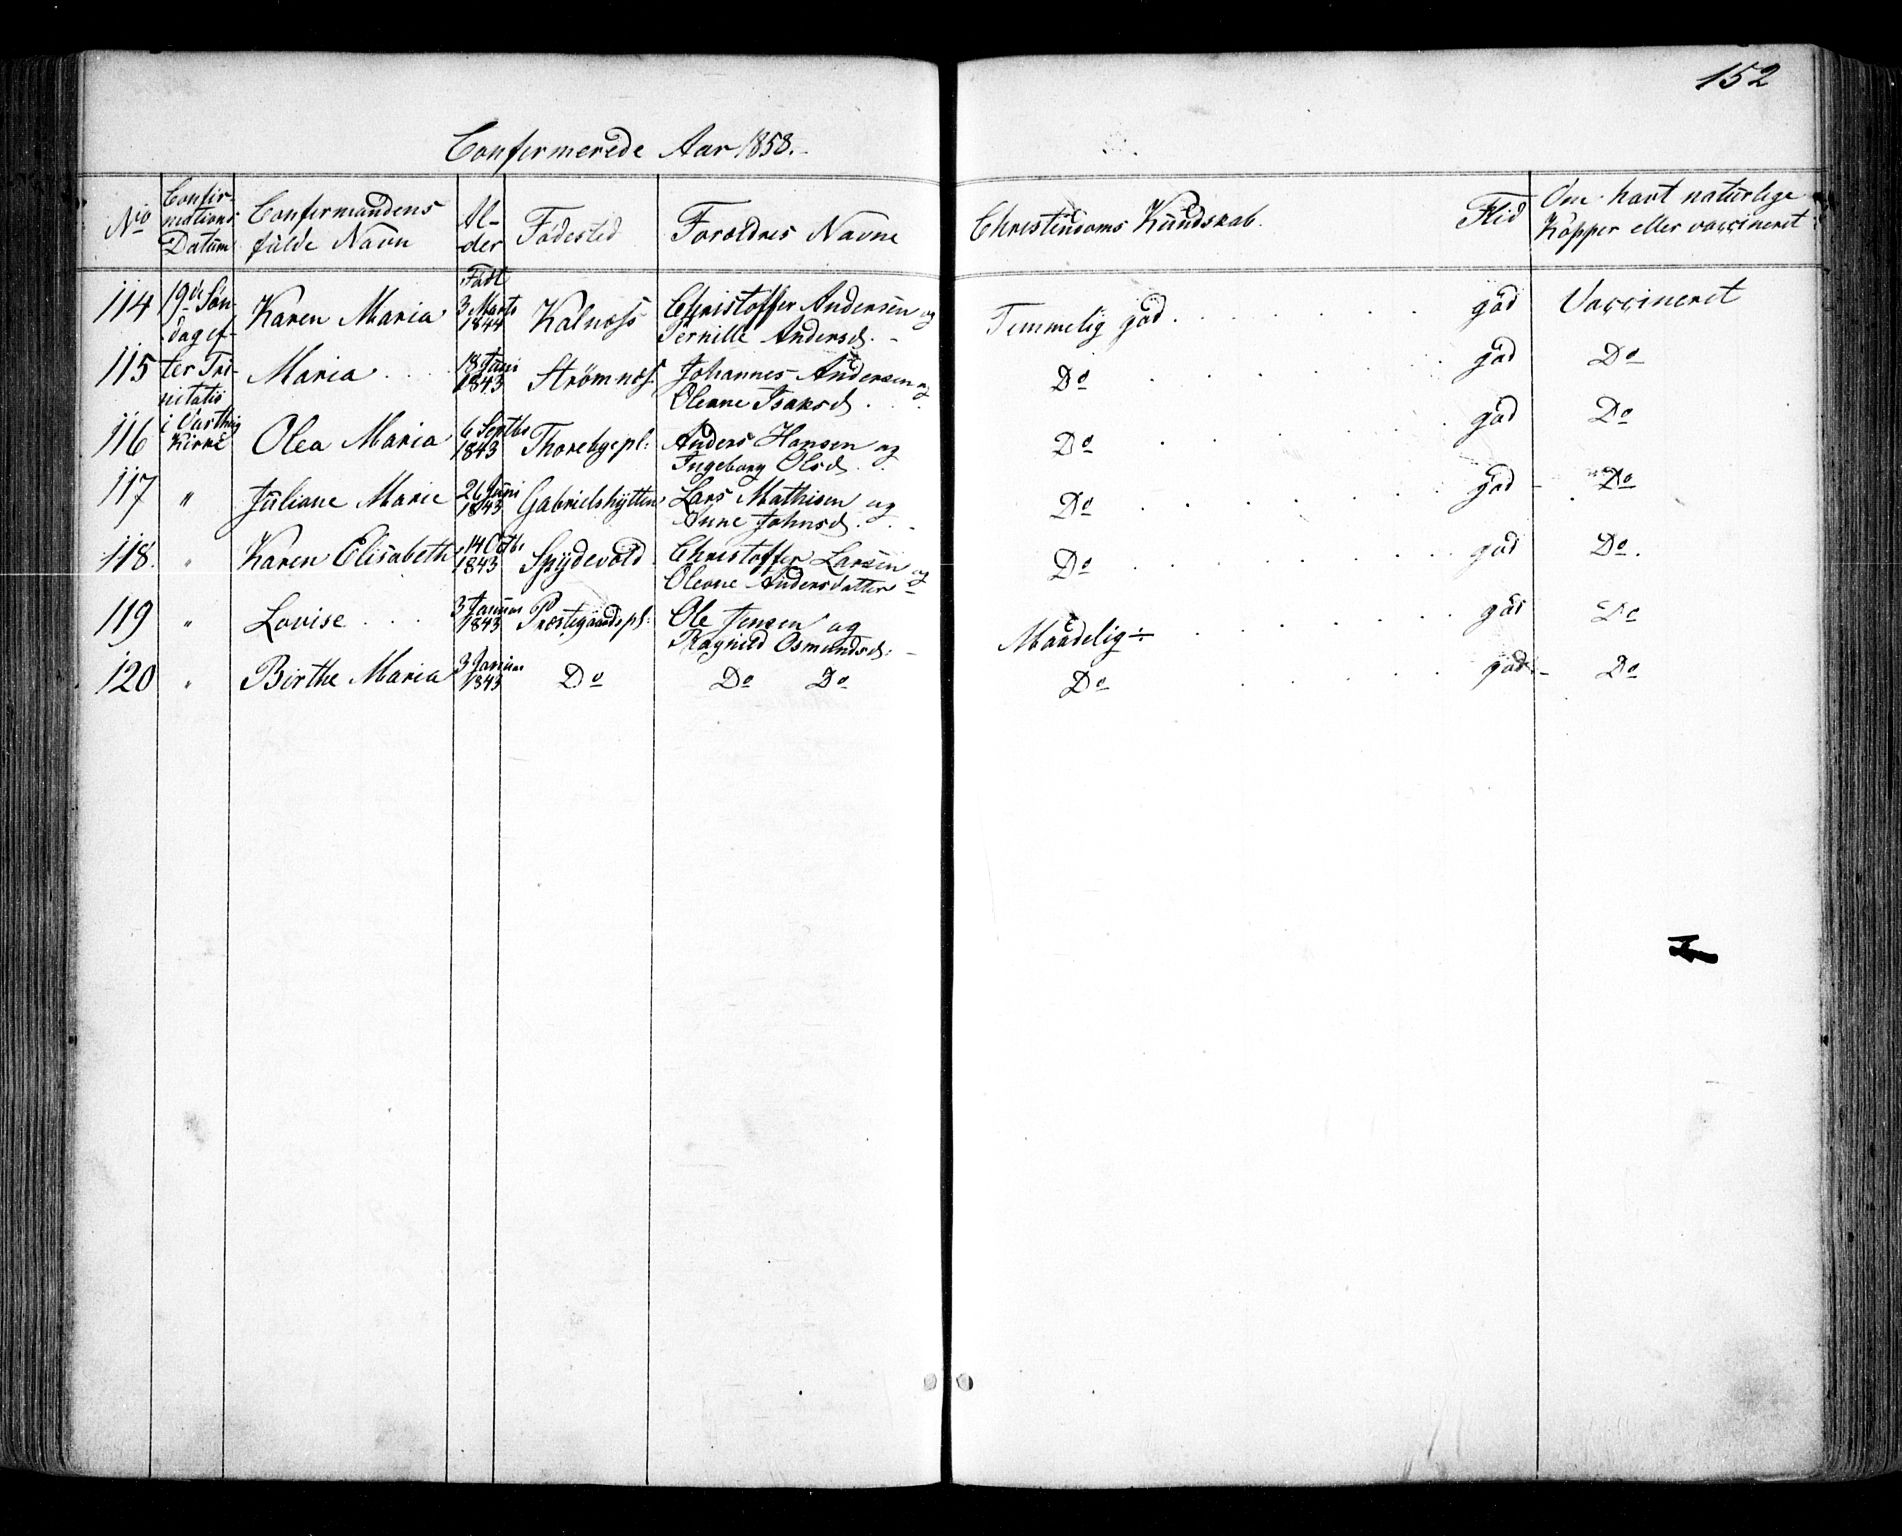 152
Confirmerede Aar 1858.
No | Confirmations Datum | Confirmandens fulde Navn | Alder | Födested | Foreldres Navne | Christendoms Kundskab. | Flid | Om havt naturlige Kopper eller vaccineret
Födt
114 | 19de Söndag ef- | Karen Maria | 3 Marts 1844 | Kalness | Christoffer Andersen og Pernille Andersd. | Temmelig god | god | Vaccineret
115 | ter Trinitatis | Maria | 18 Juni 1843 | Strömnes | Johannes Andersen og Oleane Isaksd. | Do | god | Do
116 | i Varteig Kirke | Olea Maria | 6 Septbr 1843 | Thorebyepl: | Anders Hansen og Ingeborg Olsd. | Do | god | Do
117 | " | Juliane Marie | 26 Juni 1843 | Gabrielshytten | Lars Mathisen og Anne Johnsd. | Do | god | Do
118. | " | Karen Elisabeth | 14 Octbr 1843 | Spydevold | Christoffer Larsen og Oleane Andersdatter | Do | god | Do.
119 | " | Lovise | 3 Januar 1843 | Præstegaardspl: | Ole Jensen og Ragnild Osmundsd: | Maadelig ÷ | god | Do
120 | " | Birthe Maria | 3 Januar 1843 | Do | Do Do | Do | god | Do